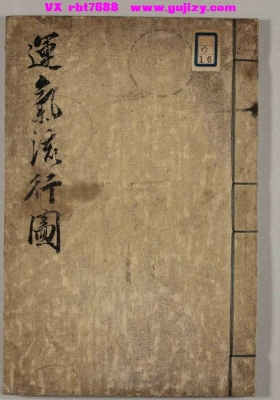 VX rbt7688 www.gujizy.com
運氣流行圖
16